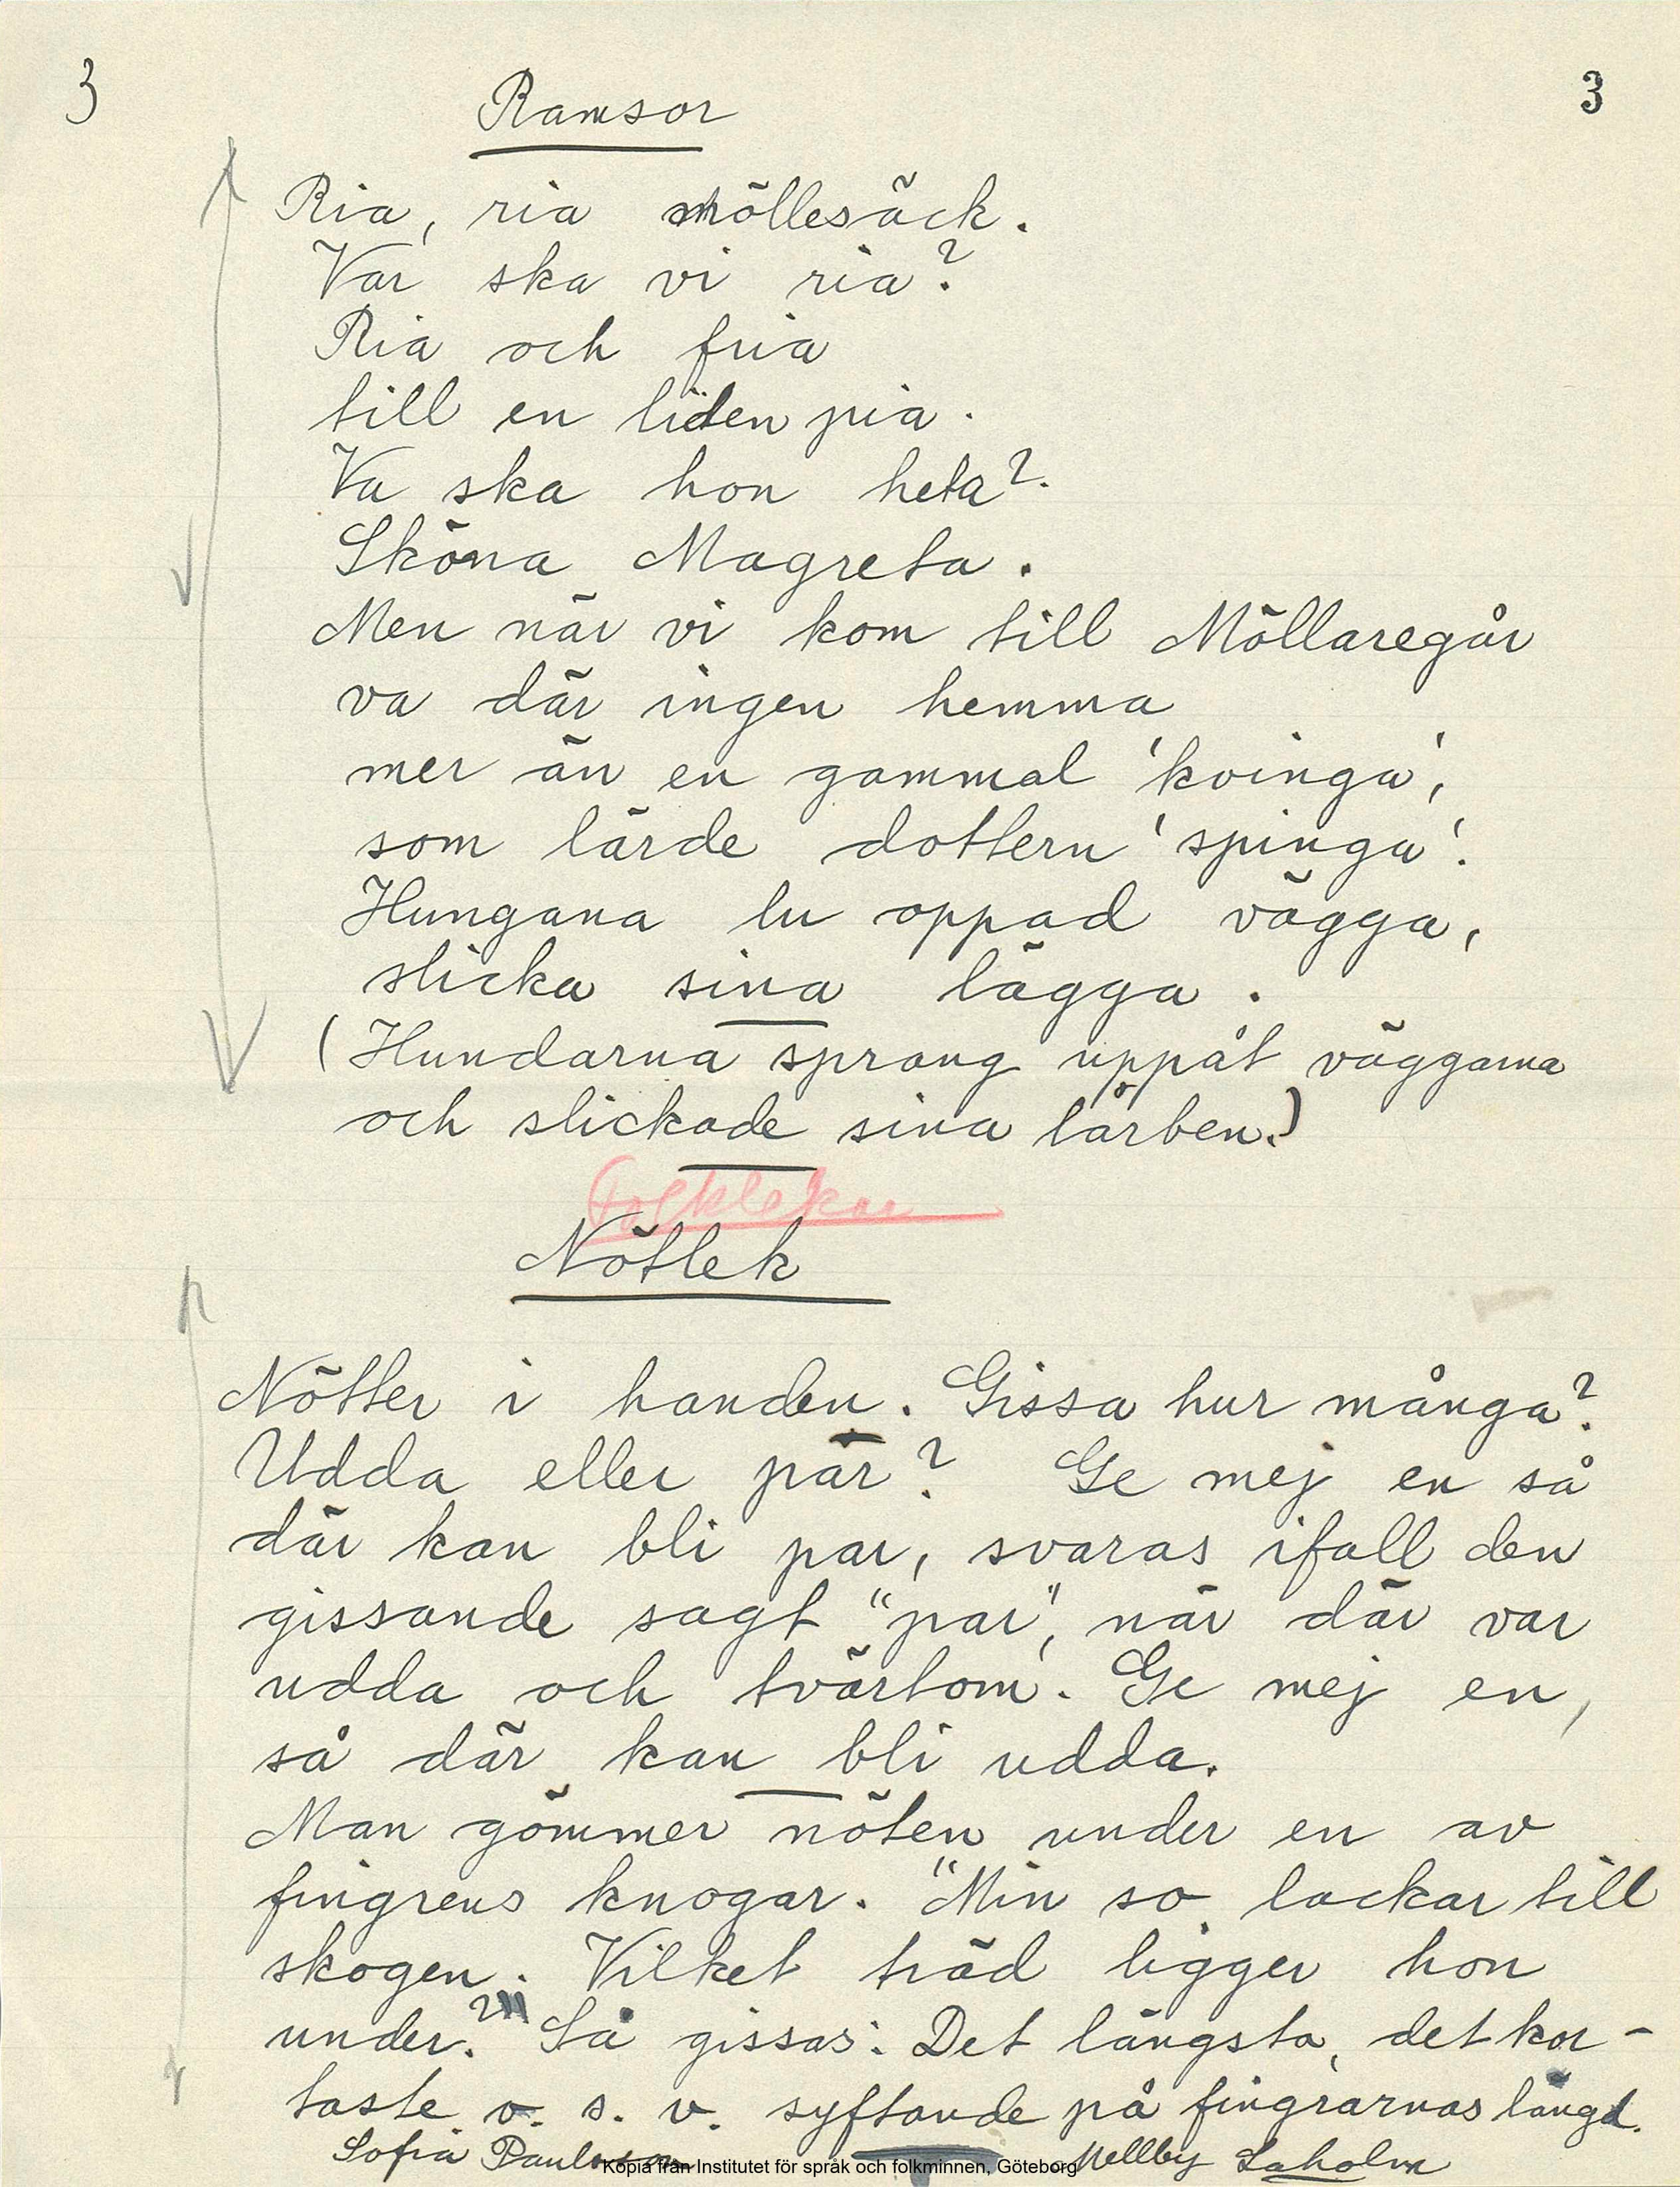 3 Ramsor 3
Ria, ria möllesäck.
Var ska vi ria?
Ria och fria
till en liden pia.
Va ska hon heta?
Sköna Magreta.
Men när vi kom till Möllaregår
va där ingen hemma
mer än en gammal 'kvinga',
som lärde dottern 'spinga'.
Hungana lu oppad vägga,
slicka sina lägga.
(Hundarna sprang uppåt väggarna
och slickade sina lårben.)
Folklekar
Nötlek
Nötter i handen. Gissa hur många?
Udda eller par? Ge mej en så
där kan bli par, svaras ifall den
gissande sagt "par", när där var
udda och tvärtom. Ge mej en,
så där kan bli udda.
Man gömmer nöten under en av
fingrens knogar. "Min so lackar till
skogen. Vilket träd ligger hon
under?" Så gissas: Det längsta, det kor-
taste o. s. v. syftande på fingrarnas längd.
Sofia Paulsson Mellby Laholm
Kopia från Institutet för språk och folkminnen, Göteborg